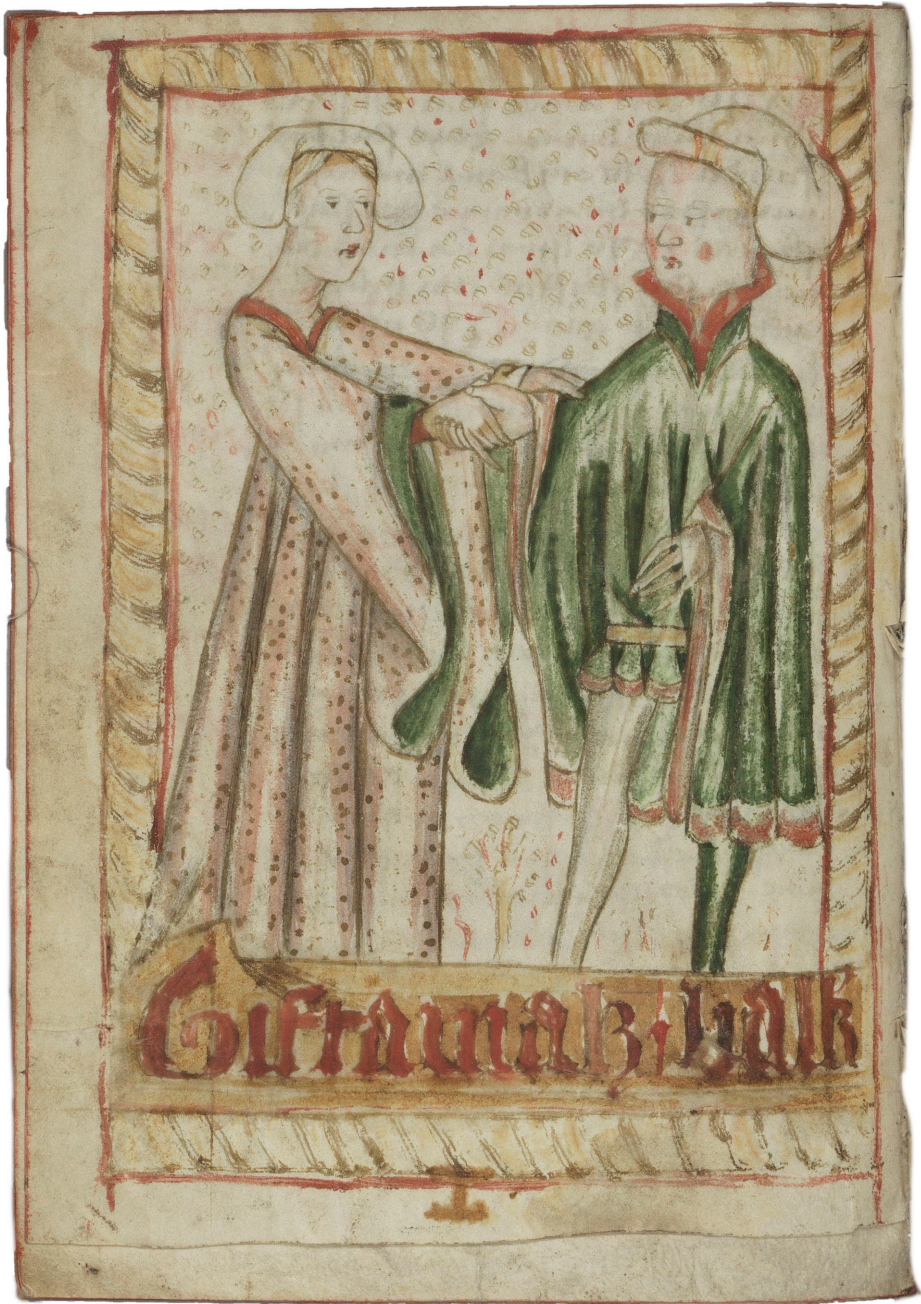 Giftamalz balk